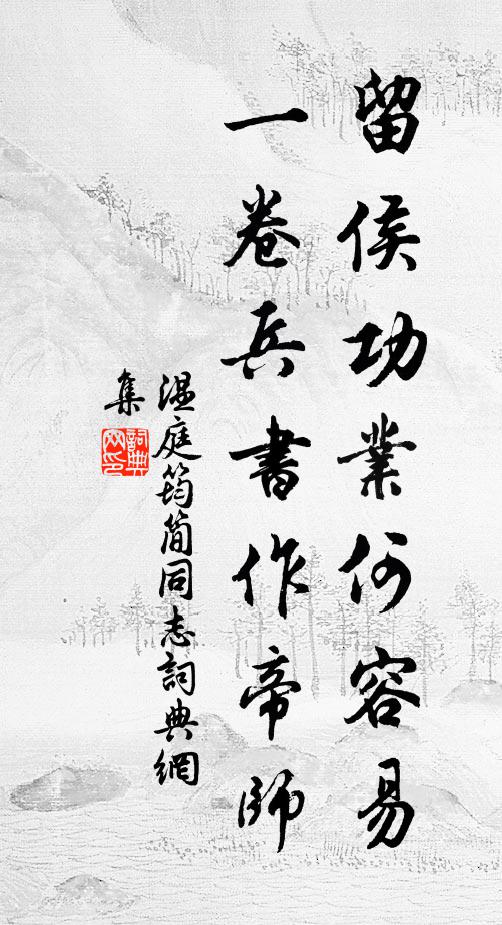 留侯功業何容易
一卷兵書作帝師
溫庭筠簡同志詞典網
集
詞典網印